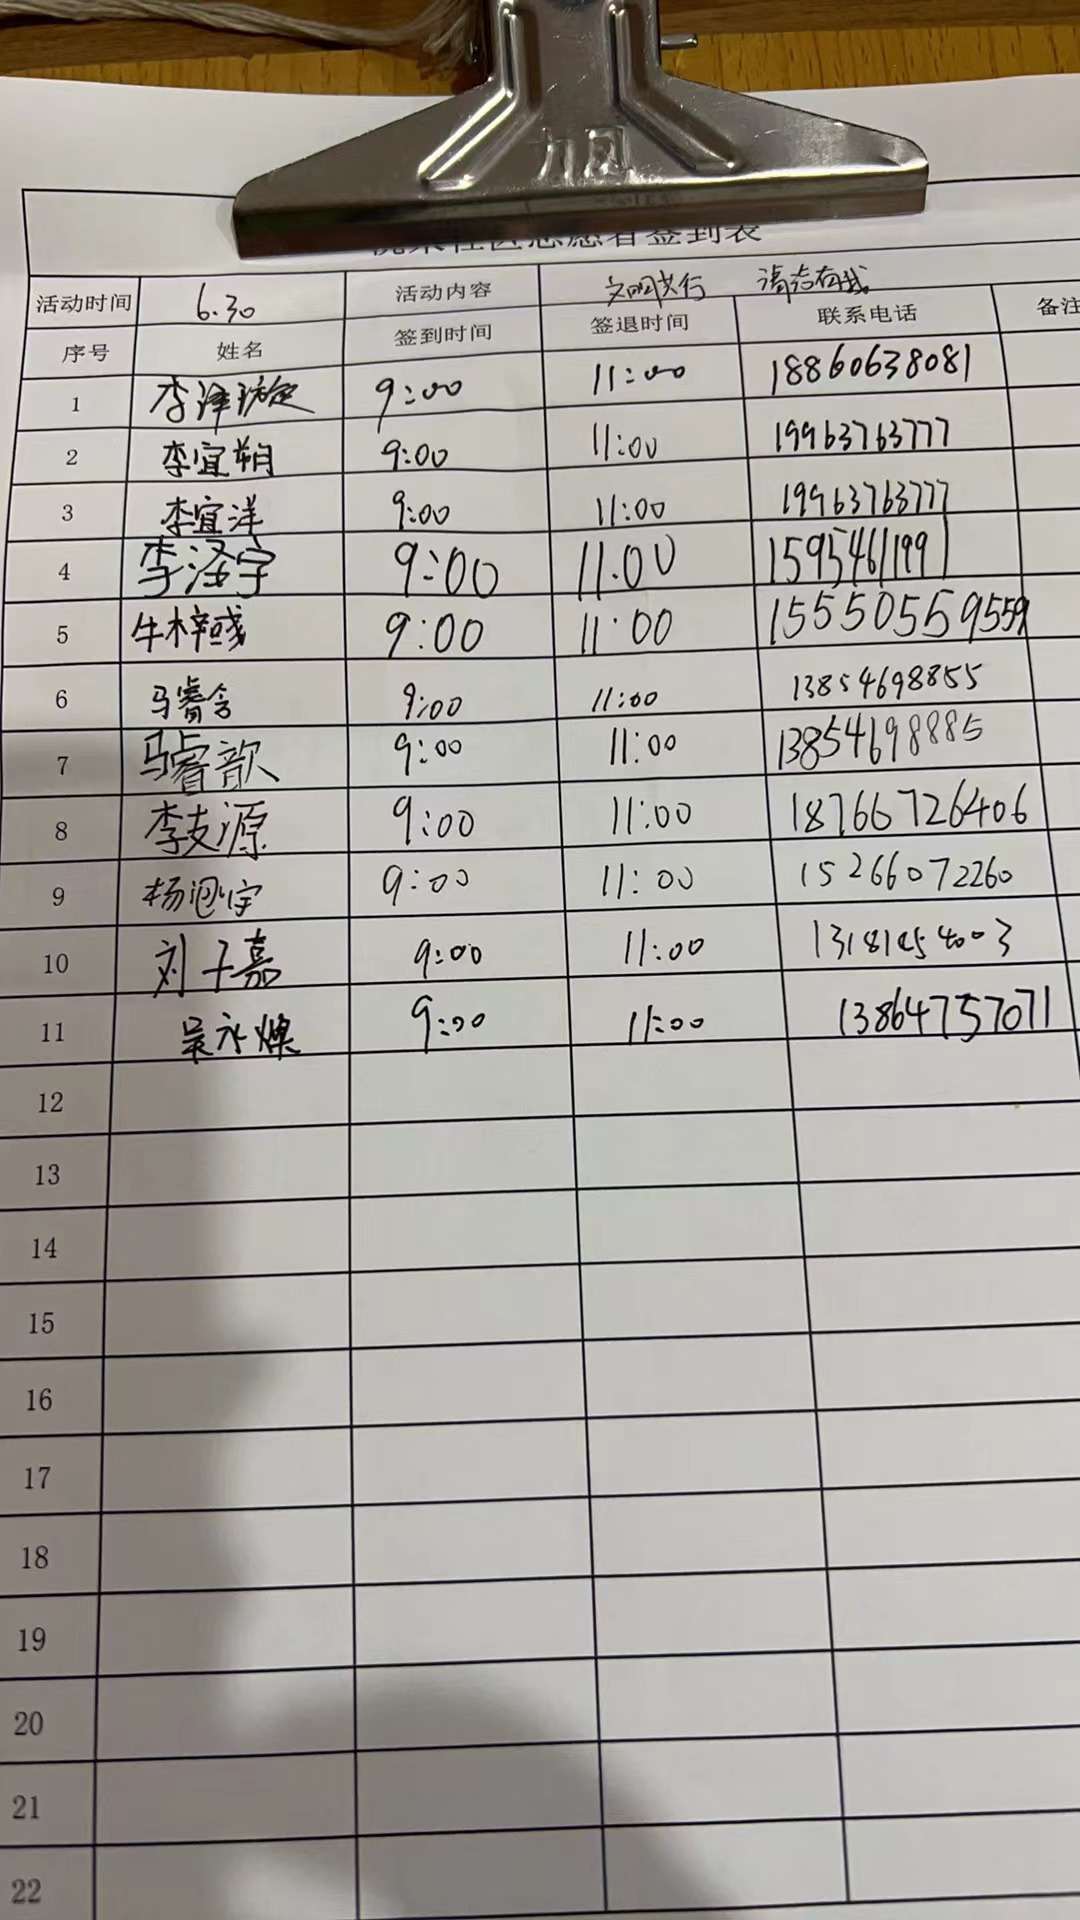 社区志愿者签到表
活动时间 6.30 活动内容 文明践行 清洁有我
序号 姓名 签到时间 签退时间 联系电话 备注
1 李泽 9:00 11:00 18860638081
2 李宜朔 9:00 11:00 19963763777
3 李宜洋 9:00 11:00 19963763777
4 李泽宇 9:00 11:00 15954611991
5 牛梓彧 9:00 11:00 15550559559
6 马睿含 9:00 11:00 13854698855
7 马睿歆 9:00 11:00 13854698885
8 李支源 9:00 11:00 18766726406
9 杨 宇 9:00 11:00 15266072260
10 刘子嘉 9:00 11:00
11 吴永 9:00 11:00 13864757071
12
13
14
15
16
17
18
19
20
21
22